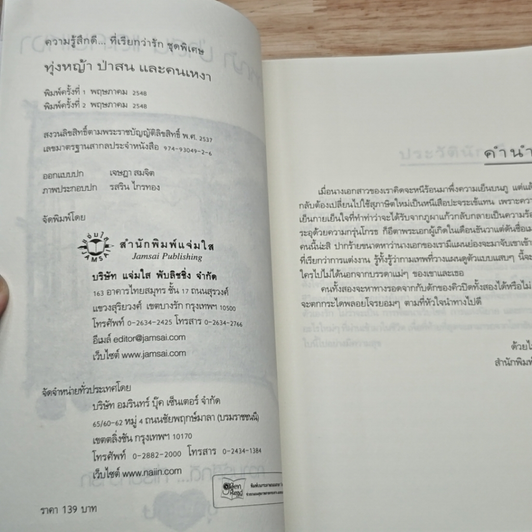 ความรู้สึกดี... ที่เรียกว่ารัก ชุดพิเศษ
ทุ่งหญ้า ป่าสน และคนเหงา
พิมพ์ครั้งที่ 1 พฤษภาคม 2548
พิมพ์ครั้งที่ 2 พฤษภาคม 2548
สงวนลิขสิทธิ์ตามพระราชบัญญัติลิขสิทธิ์ พ.ศ. 2537
เลขมาตรฐานสากลประจำหนังสือ 974-93049-2-6
ออกแบบปก เจษฎา สมจิต
ภาพประกอบปก รสริน ไกรทอง
จัดพิมพ์โดย
สำนักพิมพ์แจ่มใส
Jamsai Publishing
บริษัท แจ่มใส พับลิชชิ่ง จำกัด
163 อาคารไทยสมุทร ชั้น 17 ถนนสุรวงศ์
แขวงสุริยวงศ์ เขตบางรัก กรุงเทพฯ 10500
โทรศัพท์ 0-2634-2425 โทรสาร 0-2634-2766
อีเมล์ editor@jamsai.com
เว็บไซต์ www.jamsai.com
จัดจำหน่ายทั่วประเทศโดย
บริษัท อมรินทร์ บุ๊ค เซ็นเตอร์ จำกัด
65/60-62 หมู่ 4 ถนนชัยพฤกษ์มาลา (บรมราชชนนี)
เขตตลิ่งชัน กรุงเทพฯ 10170
โทรศัพท์ 0-2882-2000 โทรสาร 0-2434-1384
เว็บไซต์ www.naiin.com
ราคา 139 บาท
คำนำ
เมื่อนางเอกสาวของเราคิดจะหนีร้อนมาพึ่งความเย็นบนภู แต่แล้ว
กลับต้องเปลี่ยนไปใช้สุภาษิตใหม่เป็นหนีเสือปะจระเข้แทน เพราะความ
เย็นกายเย็นใจที่ทำท่าว่าจะได้รับจากภูผาแก้วกลับกลายเป็นความร้อน
ระอุด้วยความกรุ่นโกรธ
คนนี้น่ะสิ
ที่เรียกว่าการแต่งงาน
ใครไปไม่ได้นอกจากบรรดาแม่ๆ ของเขาและเธอ
คนทั้งสองจะหาทางรอดจากกับดักของคิวปิดทั้งสองได้หรือไม่
จะตกกระไดพลอยโจรยอมๆ ตามที่หัวใจนำทางไปดี
สำนักพิมพ์